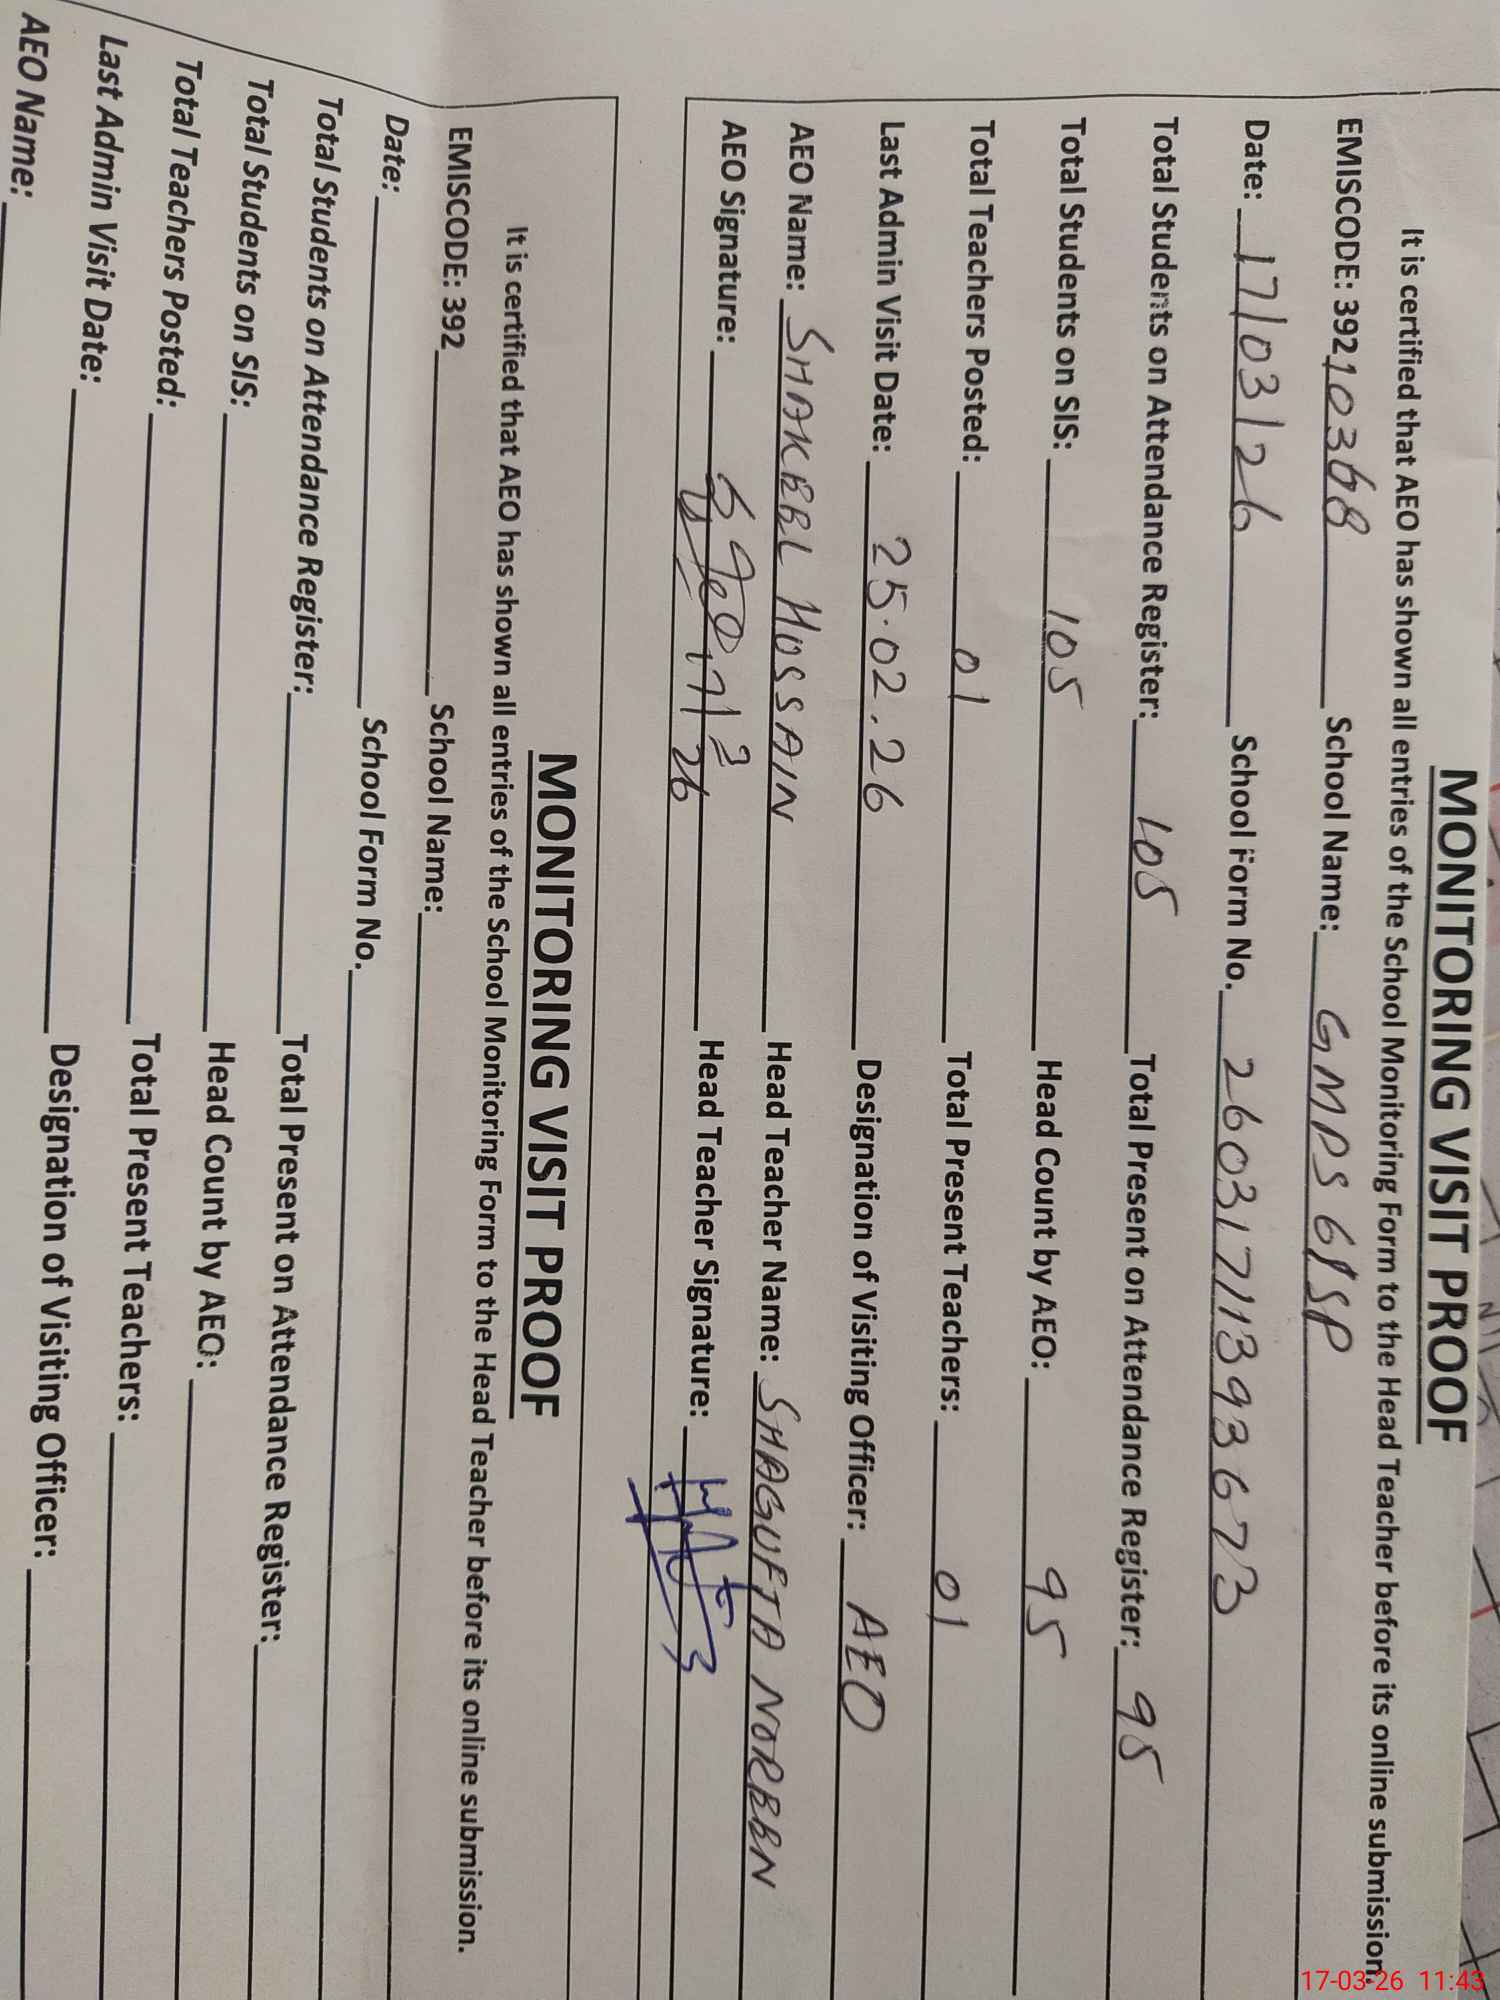 MONITORING VISIT PROOF
It is certified that AEO has shown all entries of the School Monitoring Form to the Head Teacher before its online submission.
EMISCODE: 39210368 School Name: GMPS 61SP
Date: 17/03/26 School Form No. 26031711393673
Total Students on Attendance Register: 105 Total Present on Attendance Register: 95
Total Students on SIS: 105 Head Count by AEO: 95
Total Teachers Posted: 01 Total Present Teachers: 01
Last Admin Visit Date: 25.02.26 Designation of Visiting Officer: AEO
AEO Name: SHAKEEL HUSSAIN Head Teacher Name: SHAGUFTA NOREEN
AEO Signature: Head Teacher Signature:
MONITORING VISIT PROOF
It is certified that AEO has shown all entries of the School Monitoring Form to the Head Teacher before its online submission.
EMISCODE: 392 School Name:
Date: School Form No.
Total Students on Attendance Register: Total Present on Attendance Register:
Total Students on SIS: Head Count by AEO:
Total Teachers Posted: Total Present Teachers:
Last Admin Visit Date: Designation of Visiting Officer:
AEO Name:
17-03-26 11:43